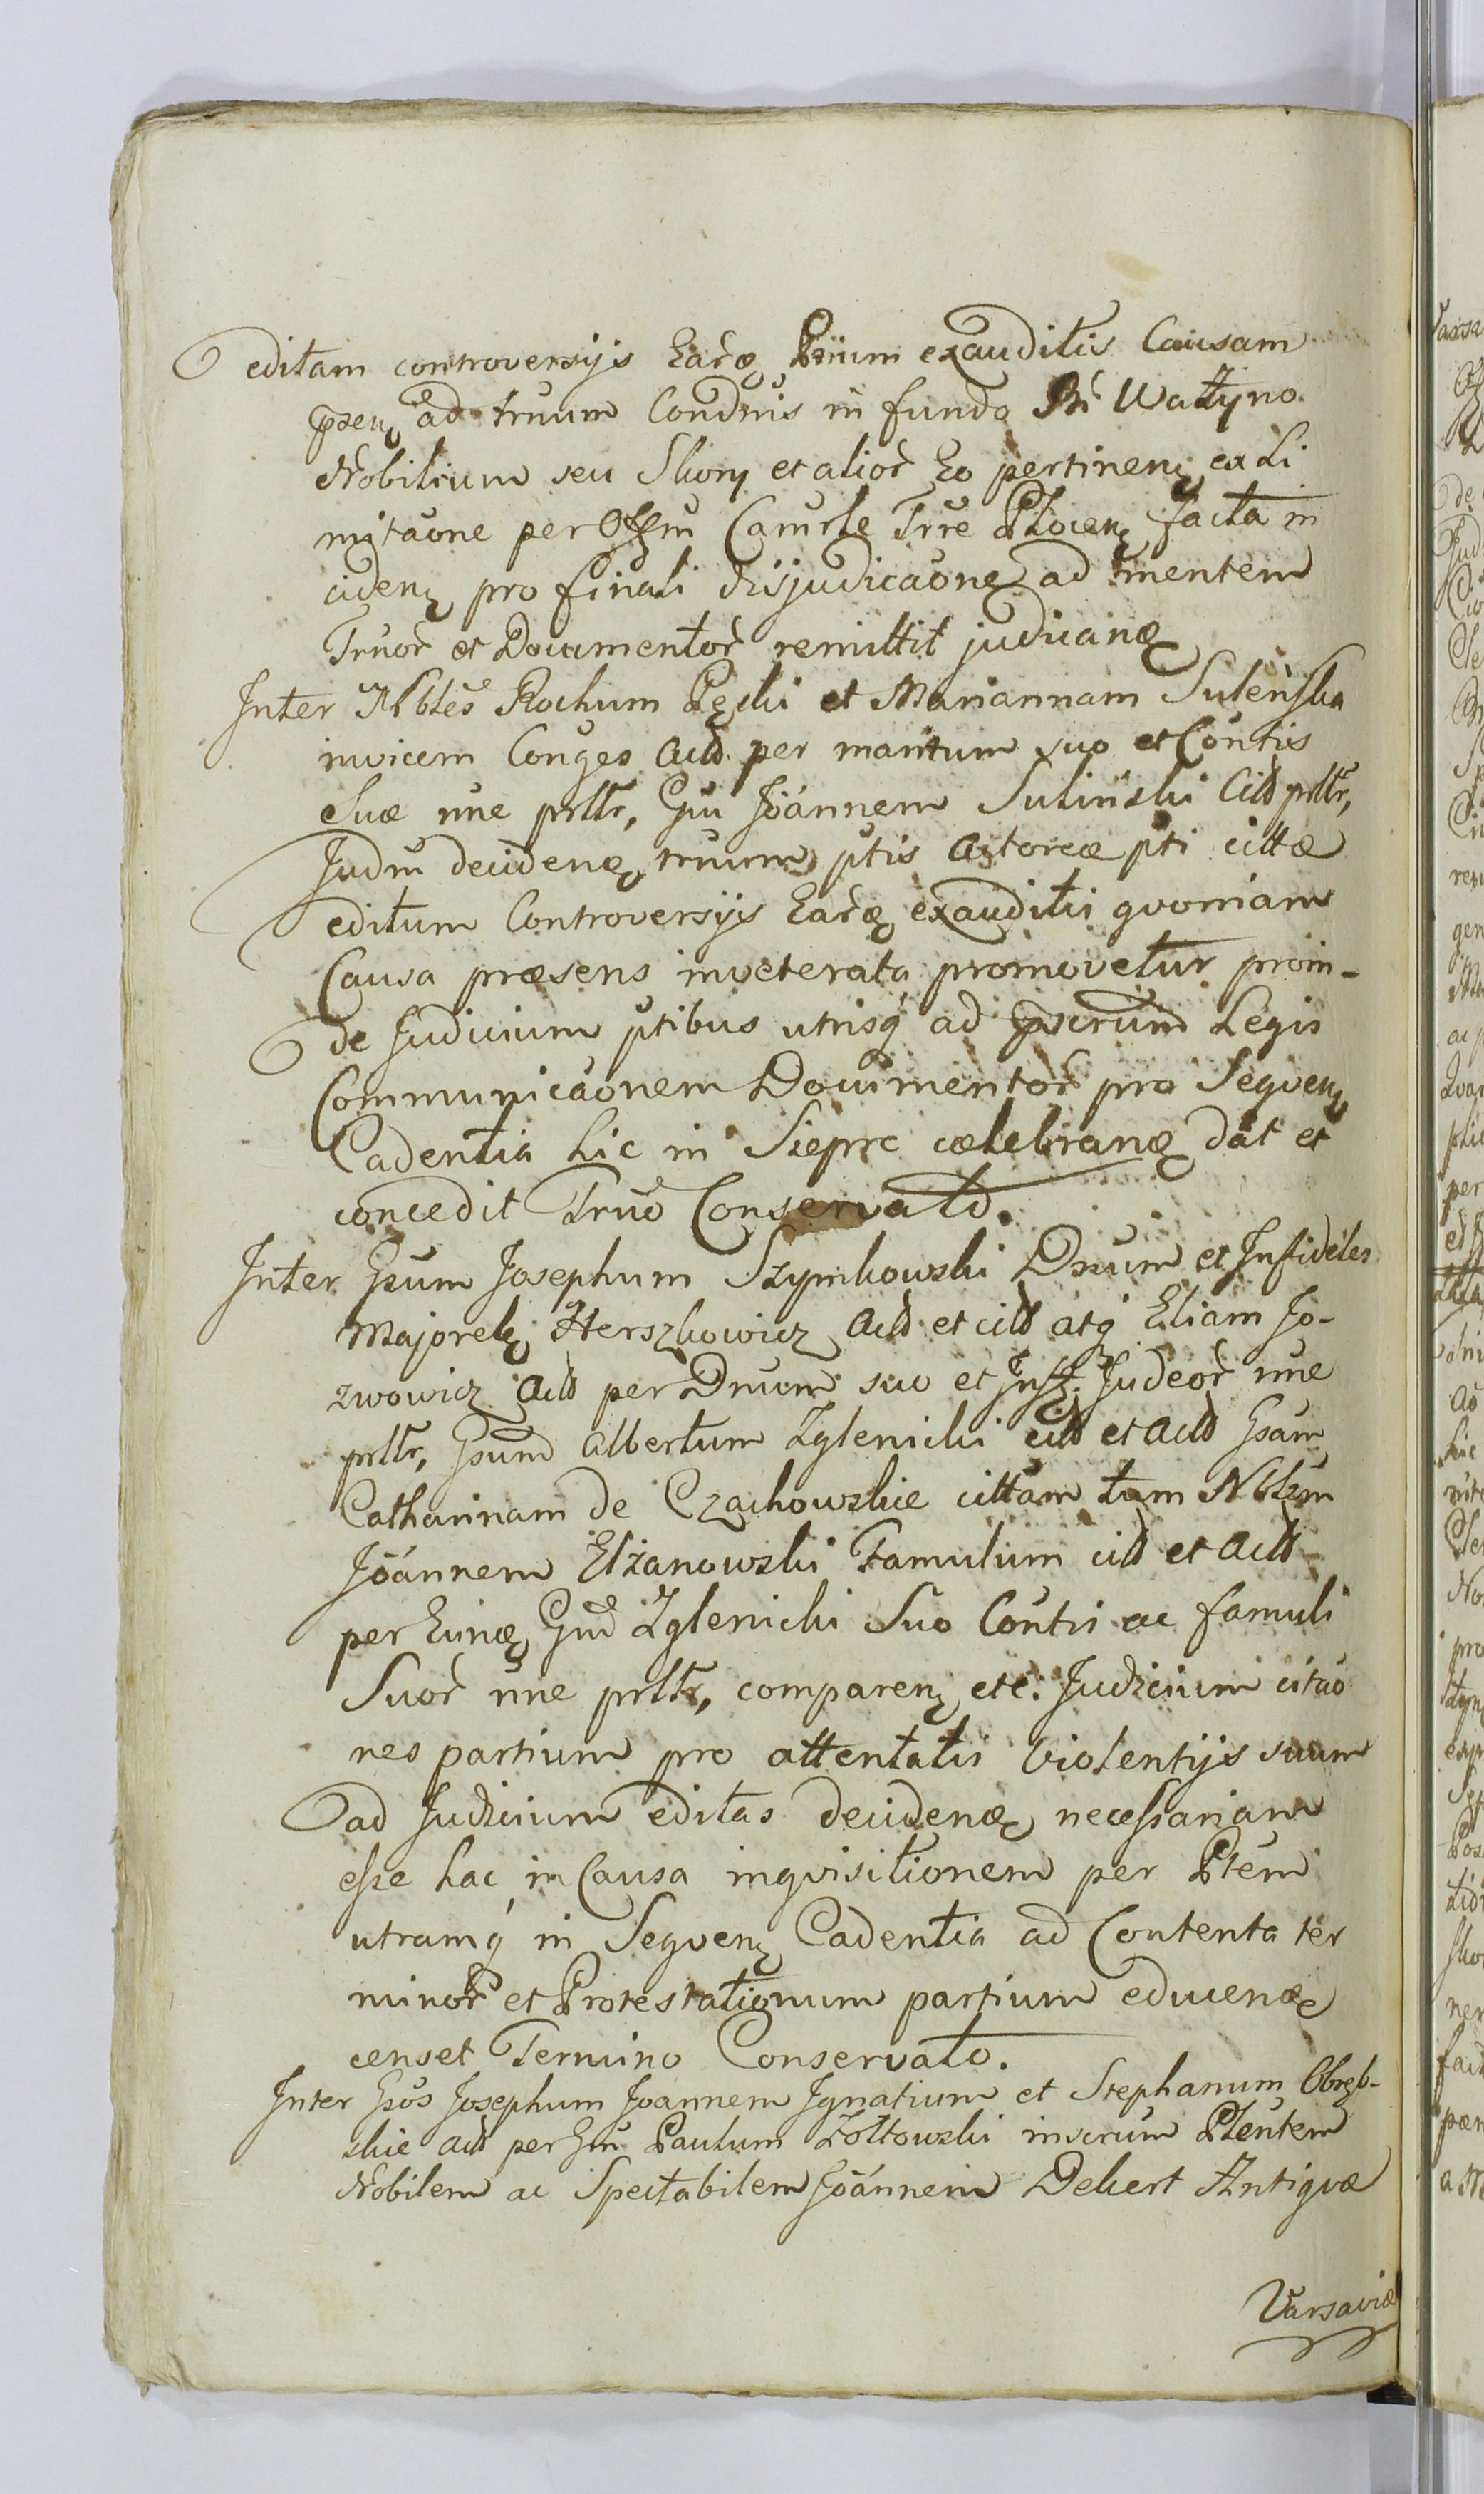 editam controversijs Eaꝛꝙ Ptium exauditis Causam
pꝛsenꝫ ad trnum Condnis in fundo Bñi Wattyno
Nobilium seu Skory et alioꝛ Eo pertinenꝫ ex Li
mitaone per Offm Camrle Trre Plocenꝫ facta in
cidenꝫ pro finali disjudicaone ad mentem
Trnoꝛ et Documentoꝛ remittit judicanꝙ
Inter Nbles Rochum Pęcki et Mariannam Suleńska
invicem Conges Actꝺ per maritum suo et Contis
Suæ nne prltr, Gm Joánnem Suliński Citꝺ prltr,
Judm decidenꝙ trnum ptis Actoreæ pti cittæ
editum Controversijs Eaꝛꝙ exauditis qvoniam
Causa præsens inveterata promovetur proin-
de Judicium ptibus utrisq̃ ad pscrum Legis
Communicaonem Documentoꝛ pro Seqvenꝫ
Cadentia hic in Sieprc celebranꝙ dat et
concedit Trno Conservato.
Inter Gsum Josephum Szymkowski Dnum et Infideles
Majorek Herszkowicz Actꝺ et citꝺ atq̃ Eliam Jo-
zwowicz Actꝺ per Dnum suo et Inff. Judeoꝛ nne
prltr, Gsum Albertum Zglenicki citꝺ et Actꝺ Gsam
Catharinam de Czachowskie cittam tum Nblem
Joánnem Elżanowski Famulum citꝺ et Actꝺ
per Eunꝙ Gm Zglenicki Suo Contis ac famuli
Suoꝛ nne prltr, comparenꝫ etc. Judicium citao
nes partium pro attentatis violentijs suum
ad Judicium editas decidenꝙ necessariam
esse hac in Causa inqvisitionem per Ptem
utramq̃ in Seqvenꝫ Cadentia ad Contenta ter
minoꝛ et Protestationum partium educenꝙ
censet Termino Conservato.
Inter Gsos Josephum Joannem Ignatium et Stephanum Obręb-
skie Actꝺ per Gm Paulum Żółtowski inscrum Pltentem
Nobilem ac Spectabilem Joánnem Dekert Antiqvæ
Varsaviæ